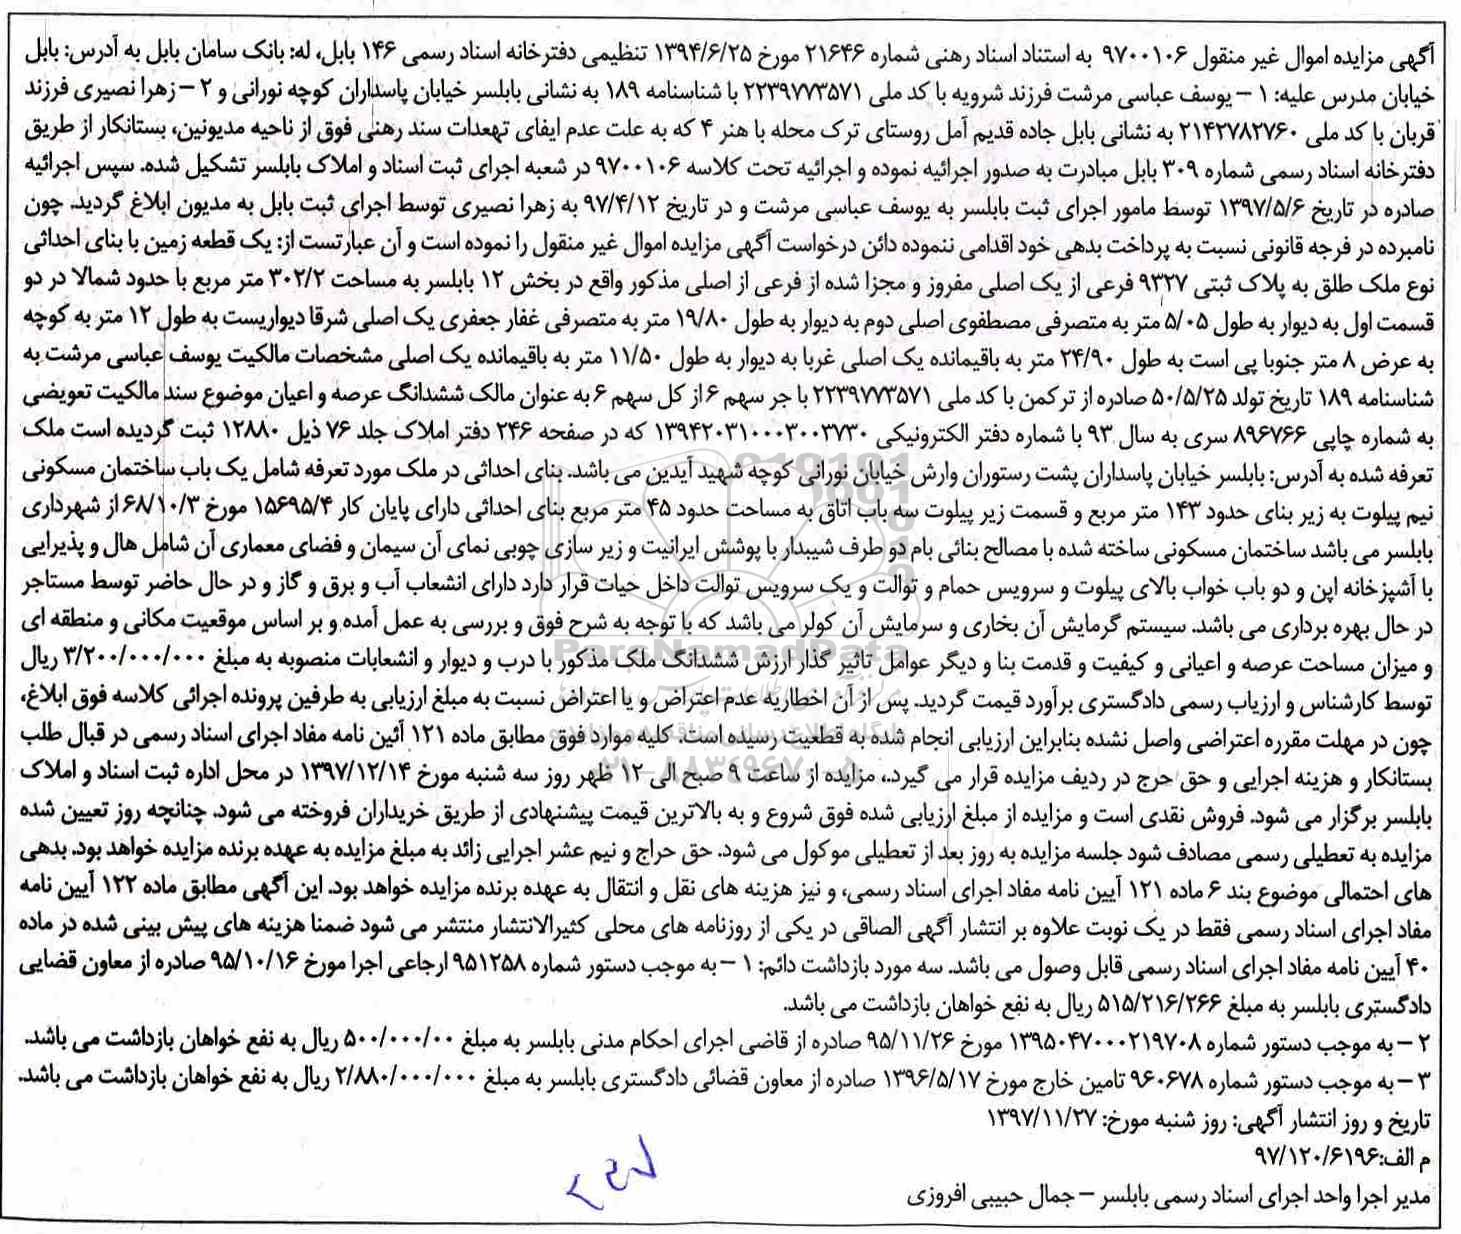 آگهی مزایده اموال غیر منقول ۹۷۰۰۱۰۶ به استناد اسناد رهنی شماره ۲۱۶۴۶ مورخ ۱۳۹۴/۶/۲۵ تنظیمی دفترخانه اسناد رسمی ۱۴۶ بابل، له: بانک سامان بابل به آدرس: بابل
خیابان مدرس علیه: ۱ – یوسف عباسی مرشت فرزند شرویه با کد ملی ۲۲۳۹۷۷۳۵۷۱ با شناسنامه ۱۸۹ به نشانی بابلسر خیابان پاسداران کوچه نورانی و ۲ – زهرا نصیری فرزند
قربان با کد ملی ۲۱۴۲۷۸۲۷۶۰ به نشانی بابل جاده قدیم آمل روستای ترک محله با هنر ۴ که به علت عدم ایفای تهعدات سند رهنی فوق از ناحیه مدیونین، بستانکار از طریق
دفترخانه اسناد رسمی شماره ۳۰۹ بابل مبادرت به صدور اجرائیه نموده و اجرائیه تحت کلاسه ۹۷۰۰۱۰۶ در شعبه اجرای ثبت اسناد و املاک بابلسر تشکیل شده. سپس اجرائیه
صادره در تاریخ ۱۳۹۷/۵/۶ توسط مامور اجرای ثبت بابلسر به یوسف عباسی مرشت و در تاریخ ۹۷/۴/۱۲ به زهرا نصیری توسط اجرای ثبت بابل به مدیون ابلاغ گردید. چون
نامبرده در فرجه قانونی نسبت به پرداخت بدهی خود اقدامی ننموده دائن درخواست آگهی مزایده اموال غیر منقول را نموده است و آن عبارتست از: یک قطعه زمین با بنای احداثی
نوع ملک طلق به پلاک ثبتی ۹۳۲۷ فرعی از یک اصلی مفروز و مجزا شده از فرعی از اصلی مذکور واقع در بخش ۱۲ بابلسر به مساحت ۳۰۲/۲ متر مربع با حدود شمالا در دو
قسمت اول به دیوار به طول ۵/۰۵ متر به متصرفی مصطفوی اصلی دوم به دیوار به طول ۱۹/۸۰ متر به متصرفی غفار جعفری یک اصلی شرقا دیواریست به طول ۱۲ متر به کوچه
به عرض ۸ متر جنوبا پی است به طول ۲۴/۹۰ متر به باقیمانده یک اصلی غربا به دیوار به طول ۱۱/۵۰ متر به باقیمانده یک اصلی مشخصات مالکیت یوسف عباسی مرشت به
شناسنامه ۱۸۹ تاریخ تولد ۵۰/۵/۲۵ صادره از ترکمن با کد ملی ۲۲۳۹۷۷۳۵۷۱ با جر سهم ۶ از کل سهم ۶ به عنوان مالک ششدانگ عرصه و اعیان موضوع سند مالکیت تعویضی
به شماره چاپی ۸۹۶۷۶۶ سری به سال ۹۳ با شماره دفتر الکترونیکی ۱۳۹۴۲۰۳۱۰۰۰۳۰۰۳۷۳۰ که در صفحه ۲۴۶ دفتر املاک جلد ۷۶ ذیل ۱۲۸۸۰ ثبت گردیده است ملک
تعرفه شده به آدرس: بابلسر خیابان پاسداران پشت رستوران وارش خیابان نورانی کوچه شهید آیدین می باشد. بنای احداثی در ملک مورد تعرفه شامل یک باب ساختمان مسکونی
نیم پیلوت به زیر بنای حدود ۱۴۳ متر مربع و قسمت زیر پیلوت سه باب اتاق به مساحت حدود ۴۵ متر مربع بنای احداثی دارای پایان کار ۱۵۶۹۵/۴ مورخ ۶۸/۱۰/۳ از شهرداری
بابلسر می باشد ساختمان مسکونی ساخته شده با مصالح بنائی بام دو طرف شیبدار با پوشش ایرانیت و زیر سازی چوبی نمای آن سیمان و فضای معماری آن شامل هال و پذیرایی
با آشپزخانه اپن و دو باب خواب بالای پیلوت و سرویس حمام و توالت و یک سرویس توالت داخل حیات قرار دارد دارای انشعاب آب و برق و گاز و در حال حاضر توسط مستاجر
در حال بهره برداری می باشد. سیستم گرمایش آن بخاری و سرمایش آن کولر می باشد که با توجه به شرح فوق و بررسی به عمل آمده و بر اساس موقعیت مکانی و منطقه ای
و میزان مساحت عرصه و اعیانی و کیفیت و قدمت بنا و دیگر عوامل تاثیر گذار ارزش ششدانگ ملک مذکور با درب و دیوار و انشعابات منصوبه به مبلغ ۳/۲۰۰/۰۰۰/۰۰۰ ریال
توسط کارشناس و ارزیاب رسمی دادگستری برآورد قیمت گردید. پس از آن اخطاریه عدم اعتراض و یا اعتراض نسبت به مبلغ ارزیابی به طرفین پرونده اجرائی کلاسه فوق ابلاغ،
چون در مهلت مقرره اعتراضی واصل نشده بنابراین ارزیابی انجام شده به قطعیت رسیده است. کلیه موارد فوق مطابق ماده ۱۲۱ آئین نامه مفاد اجرای اسناد رسمی در قبال طلب
بستانکار و هزینه اجرایی و حق حرج در ردیف مزایده قرار می گیرد.، مزایده از ساعت ۹ صبح الی ۱۲ ظهر روز سه شنبه مورخ ۱۳۹۷/۱۲/۱۴ در محل اداره ثبت اسناد و املاک
بابلسر برگزار می شود. فروش نقدی است و مزایده از مبلغ ارزیابی شده فوق شروع و به بالاترین قیمت پیشنهادی از طریق خریداران فروخته می شود. چنانچه روز تعیین شده
مزایده به تعطیلی رسمی مصادف شود جلسه مزایده به روز بعد از تعطیلی موکول می شود. حق حراج و نیم عشر اجرایی زائد به مبلغ مزایده به عهده برنده مزایده خواهد بود. بدهی
های احتمالی موضوع بند ۶ ماده ۱۲۱ آیین نامه مفاد اجرای اسناد رسمی، و نیز هزینه های نقل و انتقال به عهده برنده مزایده خواهد بود. این آگهی مطابق ماده ۱۲۲ آیین نامه
مفاد اجرای اسناد رسمی فقط در یک نوبت علاوه بر انتشار آگهی الصاقی در یکی از روزنامه های محلی کثیرالانتشار منتشر می شود ضمنا هزینه های پیش بینی شده در ماده
۴۰ آیین نامه مفاد اجرای اسناد رسمی قابل وصول می باشد. سه مورد بازداشت دائم: ۱ – به موجب دستور شماره ۹۵۱۲۵۸ ارجاعی اجرا مورخ ۹۵/۱۰/۱۶ صادره از معاون قضایی
دادگستری بابلسر به مبلغ ۵۱۵/۲۱۶/۲۶۶ ریال به نفع خواهان بازداشت می باشد.
۲ – به موجب دستور شماره ۱۳۹۵۰۴۷۰۰۰۲۱۹۷۰۸ مورخ ۹۵/۱۱/۲۶ صادره از قاضی اجرای احکام مدنی بابلسر به مبلغ ۵۰۰/۰۰۰/۰۰ ریال به نفع خواهان بازداشت می باشد.
۳ – به موجب دستور شماره ۹۶۰۶۷۸ تامین خارج مورخ ۱۳۹۶/۵/۱۷ صادره از معاون قضائی دادگستری بابلسر به مبلغ ۲/۸۸۰/۰۰۰/۰۰۰ ریال به نفع خواهان بازداشت می باشد.
تاریخ و روز انتشار آگهی: روز شنبه مورخ: ۱۳۹۷/۱۱/۲۷
م الف:۹۷/۱۲۰/۶۱۹۶
مدیر اجرا واحد اجرای اسناد رسمی بابلسر – جمال حبیبی افروزی
ParsNamadData